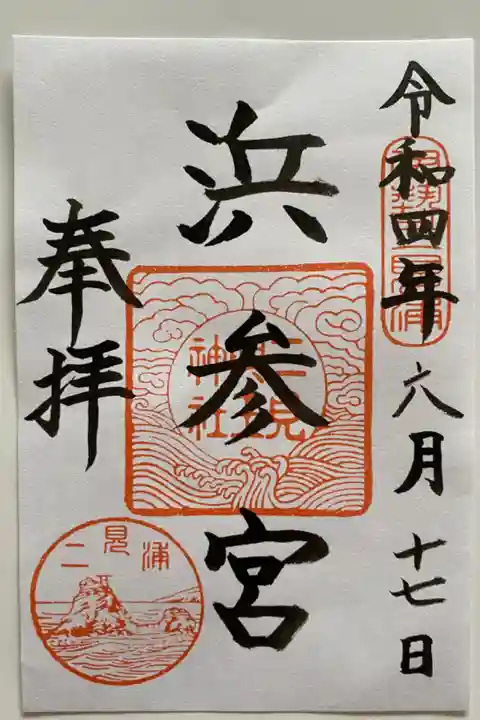 令和四年六月十七日
浜参宮
奉拝
二見
神社
二見浦